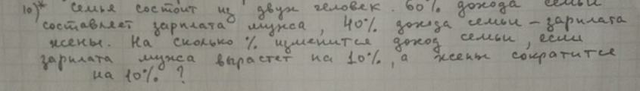 10)* Семья состоит из двух человек. 60% дохода семьи
составляет зарплата мужа, 40% дохода семьи – зарплата
жены. На сколько % изменится доход семьи, если
зарплата мужа вырастет на 10%, а жены сократится
на 10%?